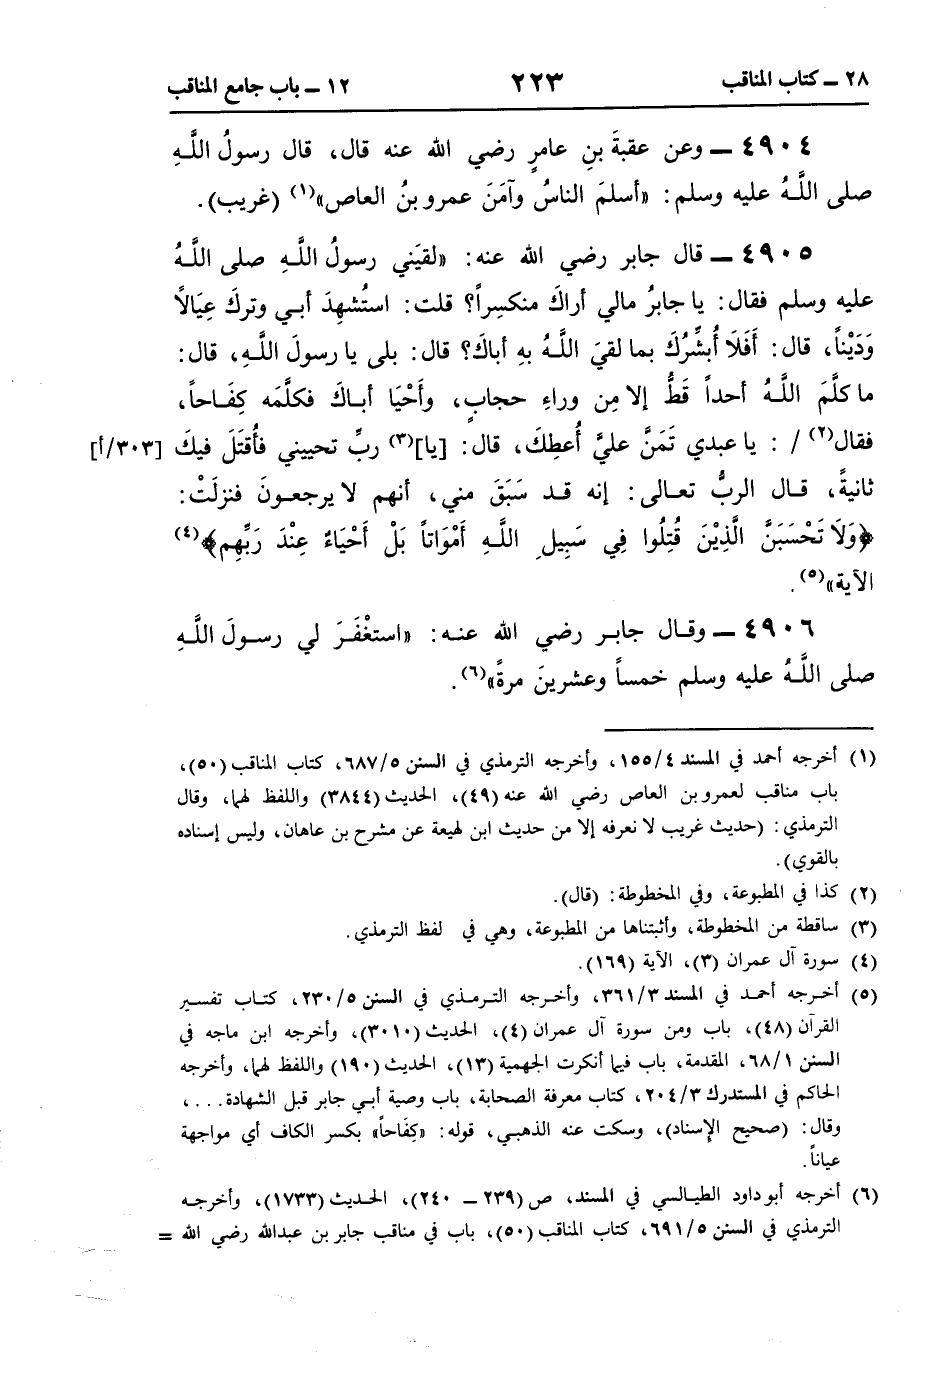 ٢٨ ـ كتاب المناقب ٢٢٣ ١٢ ـ باب جامع المناقب
٤٩٠٤ ـ وعن عقبةَ بنِ عامرٍ رضي الله عنه قال، قال رسولُ اللَّهِ
صلى اللَّهُ عليه وسلم: «أسلمَ الناسُ وآمَنَ عمرو بنُ العاص»(١) (غريب).
٤٩٠٥ ـ قال جابر رضي الله عنه: «لقيَني رسولُ اللَّهِ صلى اللَّهُ
عليه وسلم فقال: يا جابرُ مالي أراكَ منكسراً؟ قلت: استُشهِدَ أبي وتركَ عِيَالاً
وَدَيْناً، قال: أَفَلَا أُبشِّرُكَ بما لقيَ اللَّهُ بهِ أباكَ؟ قال: بلى يا رسولَ اللَّهِ، قال:
ما كلَّمَ اللَّهُ أحداً قَطُّ إلا مِن وراءِ حجابٍ، وأَحْيَا أباكَ فكلَّمَه كِفَاحاً،
فقال(٢) / : يا عبدي تَمَنَّ عليَّ أُعطِكَ، قال: [يا](٣) ربِّ تحييني فأُقتَلَ فيكَ [٣٠٣/أ]
ثانيةً، قال الربُّ تعالى: إنه قد سَبَقَ مني، أنهم لا يرجعونَ فنزلَتْ:
﴿وَلَا تَحْسَبَنَّ الَّذِيْنَ قُتِلُوا فِي سَبِيلِ اللَّهِ أَمْوَاتاً بَلْ أَحْيَاءٌ عِنْدَ رَبِّهِم﴾(٤)
الآية»(٥).
٤٩٠٦ ـ وقال جابر رضي الله عنه: «استغْفَرَ لي رسولَ اللَّهِ
صلى اللَّهُ عليه وسلم خمساً وعشرينَ مرةً»(٦).
(١) أخرجه أحمد في المسند ١٥٥/٤، وأخرجه الترمذي في السنن ٦٨٧/٥، كتاب المناقب (٥٠)،
باب مناقب لعمرو بن العاص رضي الله عنه (٤٩)، الحديث (٣٨٤٤) واللفظ لهما، وقال
الترمذي: (حديث غريب لا نعرفه إلا من حديث ابن لهيعة عن مشرح بن عاهان، وليس إسناده
بالقوي).
(٢) كذا في المطبوعة، وفي المخطوطة: (قال).
(٣) ساقطة من المخطوطة، وأثبتناها من المطبوعة، وهي في لفظ الترمذي.
(٤) سورة آل عمران (٣)، الآية (١٦٩).
(٥) أخرجه أحمد في المسند ٣٦١/٣، وأخرجه الترمذي في السنن ٢٣٠/٥، كتاب تفسير
القرآن (٤٨)، باب ومن سورة آل عمران (٤)، الحديث (٣٠١٠)، وأخرجه ابن ماجه في
السنن ٦٨/١، المقدمة، باب فيما أنكرت الجهمية (١٣)، الحديث (١٩٠) واللفظ لهما، وأخرجه
الحاكم في المستدرك ٢٠٤/٣، كتاب معرفة الصحابة، باب وصية أبي جابر قبل الشهادة....،
وقال: (صحيح الإسناد)، وسكت عنه الذهبي، قوله: «كِفَاحاً» بكسر الكاف أي مواجهة
عياناً.
(٦) أخرجه أبو داود الطيالسي في المسند، ص (٢٣٩ ـ ٢٤٠)، الحديث (١٧٣٣)، وأخرجه
الترمذي في السنن ٦٩١/٥، كتاب المناقب (٥٠)، باب في مناقب جابر بن عبدالله رضي الله =